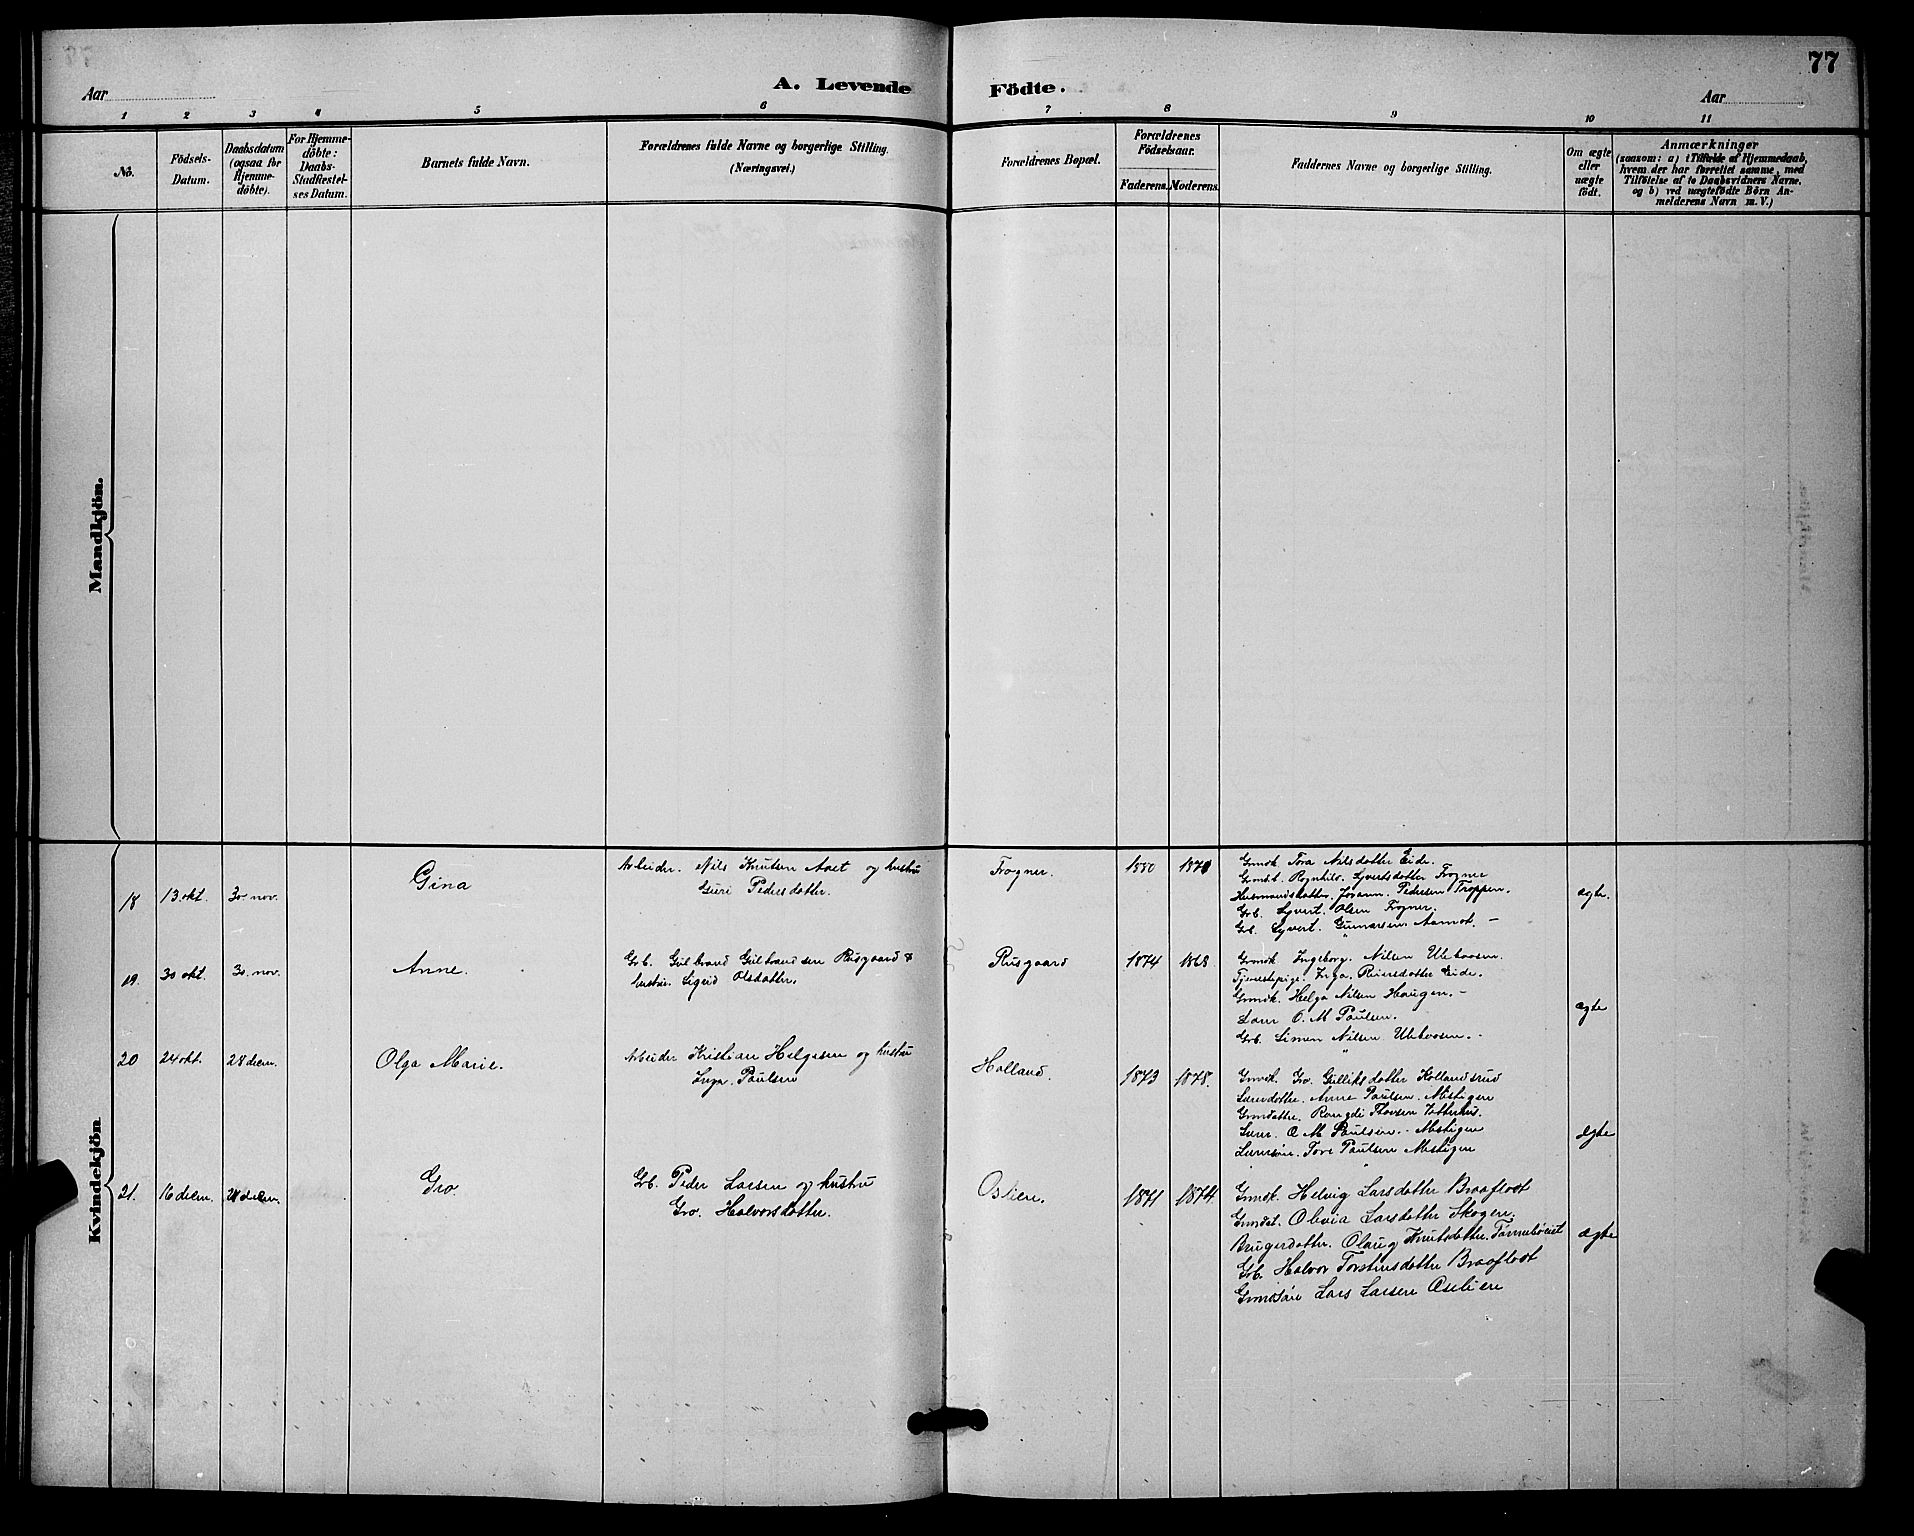 77
Aar
A. Levende Födte.
Aar
1 2 3 4 5 6 7 8 9 10 11
No.
Födsels-
Datum.
Daabsdatum
(ogsaa for
Hjemme-
döbte).
For Hjemme-
döbte:
Daabs-
Stadfæstel-
ses Datum.
Barnets fulde Navn.
Forældrenes fulde Navne og borgerlige Stilling.
(Næringsvei.)
Forældrenes Bopæl.
Forældrenes
Födselsaar.
Faderens. Moderens.
Faddernes Navne og borgerlige Stilling.
Om ægte
eller
uægte
født.
Anmærkninger
(saasom: a) i Tilfælde af Hjemmedaab,
hvem der har forrettet samme, med
Tilföielse af to Daabsvidners Navne,
og b) ved uægtefödte Börn An-
melderens Navn m. V.)
Mandkjön.
Kvindekjön
18 13 okt. 30 nov. Gina
Arbeider. Nils Knutsen Aaet og hustru
Guri Pedersdatter.
Frogner. 1880 1871
Grmdt. Tora Nilsdatter Eide.
Grmdt. Ragnhild. Syvertsdatter Frogner
Husmandsdatter. Johann. Pedersen Troppen.
Grb. Syvert. Olsen Frogner.
Grb. Syvert. Gunnarsen Aamot. –
ægte.
19. 30 okt. 30. nov. Anne.
Grb. Gulbrand Gulbrandsen Rusgaard &
hustru. Sigrid Olsdatter.
Rusgaard 1874 1868.
Grmdt. Ingeborg. Nilsen Ulevosen.
Tjenestepige. Inga. Reiersdatter Eide.
Grmdt. Helga Nilsen Haugen. –
Lærer O. M Paulsen.
Grb. Simen Nilsen Ulevosen. –
ægte
20 24 okt. 28 decm. Olga Marie.
Arbeider Kristian Helgesen og hustru
Inga. Paulsen
Holland. 1873 1878.
Grmdt. Gro. Gulliksdatter Hollandsrud
Lærerdatter. Anne Paulsen. Mestigen
Grmdatter. Rangdi Thovsen
Lærer. O M Paulsen. Mestigen
Lærersøn. Tore Paulsen Mestigen
ægte
21. 16 decm. 28 decm. Gro.
Grb. Peder Larsen og hustru
Gro. Halvorsdatter.
Oslien. 1871 1874.
Grmdt. Helvig Larsdatter Braaflodt
Grmdat. Olivia Larsdatter Skogen.
Brugerdatter. Olaug Knutsdatter.
Grb. Halvor Torstensdatter Braaflodt
Grmdsøn Lars Larsen Oslien
ægte